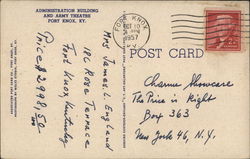 ADMINISTRATION BUILDING
AND ARMY THEATRE
FORT KNOX, KY.
FORT KNOX
OCT 10
1957
KY.
POST CARD
Mrs James L England
18C Rose Terrace
Fort Knox Kentucky
Price $2998.50
Charm Showcase
The Price is Right
Box 363
New York 46, N.Y.